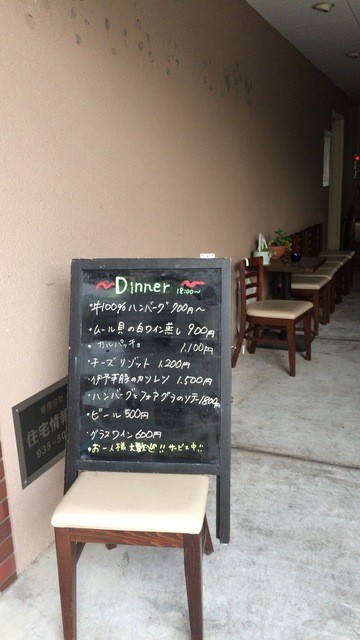 Dinner 18:00〜
・牛100%ハンバーグ 900円〜
・ムール貝の白ワイン蒸し 900円
・カルパッチョ 1.100円
・チーズリゾット 1.200円
・伊予羊豚のカツレツ 1.500円
・ハンバーグとフォアグラのソテー 1800円
・ビール 500円
・グラスワイン 600円
・お一人様大歓迎!! サービス中!!
住宅情報
935-50